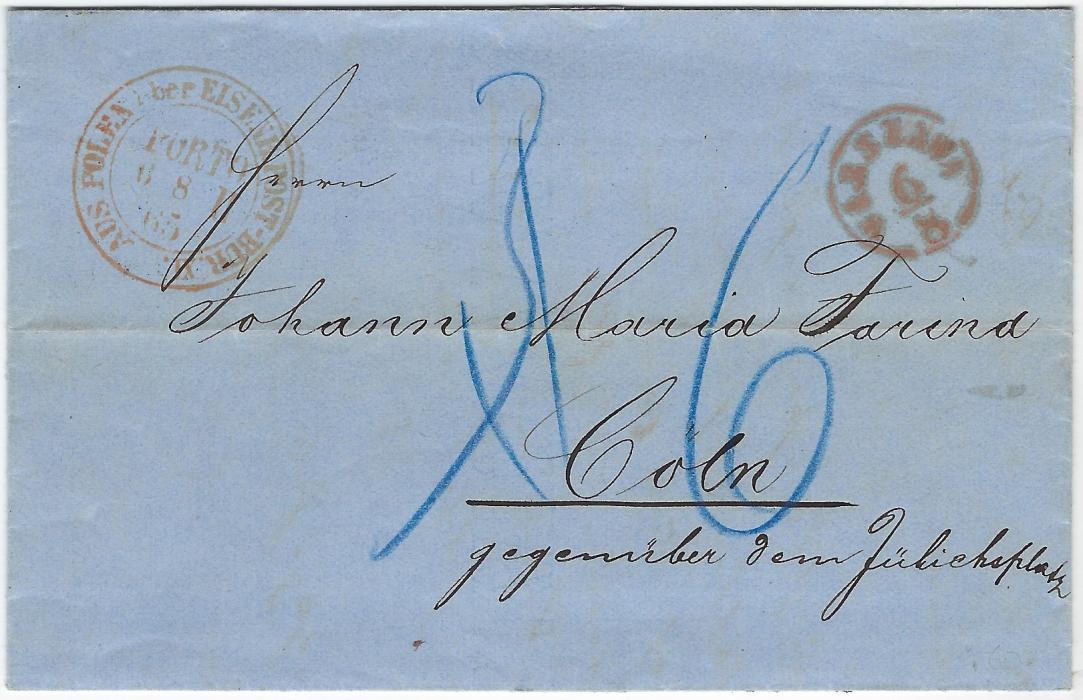 AUS POLEN über EISENB. POST-BUR.
PORTO
8
65
WARSZAWA
6/8
Herrn
Johann Maria Farina
Cöln
gegenüber dem Jülichsplatz
6